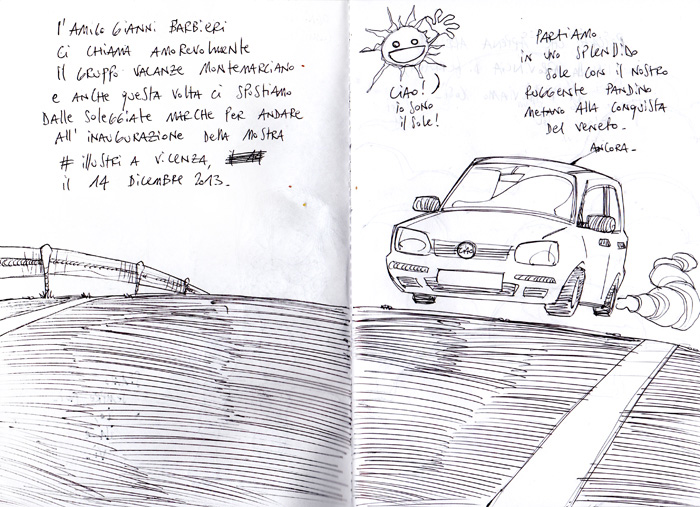 l'AMICO GIANNI BARBIERI
CI CHIAMA AMOREVOLMENTE
il GRUPPO VACANZE MONTEMARCIANO
e ANCHE questa VOLTA CI SPOSTIAMO
DALLE SOLEGGIATE MARCHE PER ANDARE
All' INAUGURAZIONE DELLA MOSTRA
# illUSTRI A VICENZA,
il 14 DICEMBRE 2013.
CIAO!
io SONO
il SOLE!
PARTIAMO
in UNO SPLENDIDO
SOLE CON il NOSTRO
RUGGENTE PANDINO
METANO ALLA CONQUISTA
DEL VENETO.
ANCORA.